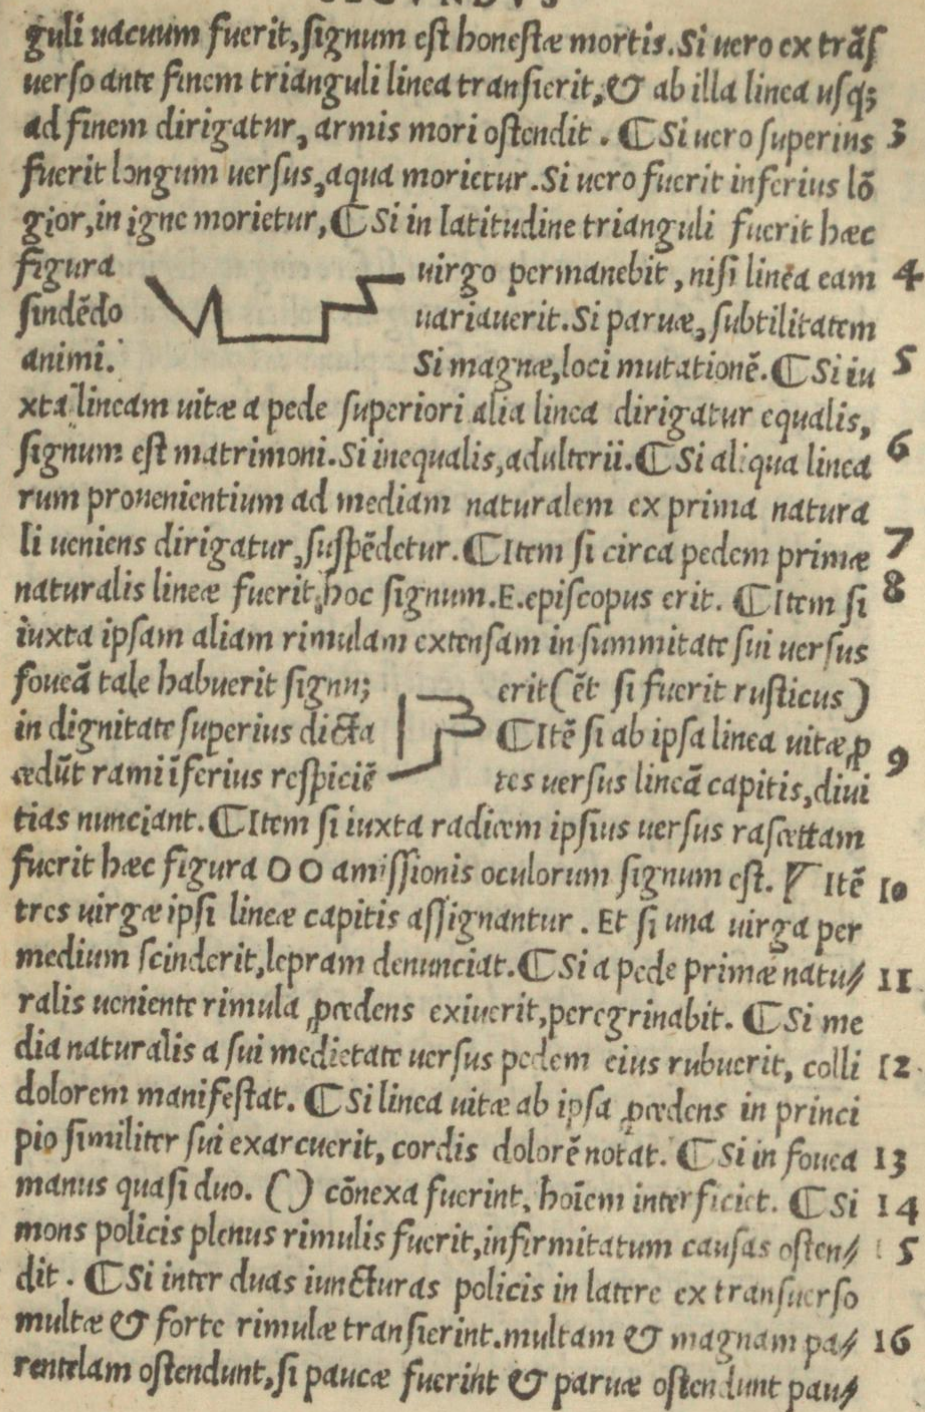 guli uacuum fuerit, ſignum eſt honeſtæ mortis. Si uero ex trãſ
uerſo ante finem trianguli linea tranſierit, & ab illa linea uſq;
ad finem dirigatur, armis mori oſtendit. ¶ Si uero ſuperius 3
fuerit longum uerſus, aqua morietur. Si uero fuerit inferius lõ
gior, in igne morietur, ¶ Si in latitudine trianguli fuerit hæc
figura uirgo permanebit, niſi linea eam 4
ſindẽdo uariauerit. Si paruæ, ſubtilitatem
animi. Si magnæ, loci mutationẽ. ¶ Si iu 5
xta lineam uitæ a pede ſuperiori alia linea dirigatur equalis,
ſignum eſt matrimoni. Si inequalis, adulterii. ¶ Si aliqua linea 6
rum prouenientium ad mediam naturalem ex prima natura
li ueniens dirigatur, ſuſpẽdetur. ¶ Item ſi circa pedem primæ 7
naturalis lineæ fuerit hoc ſignum. E. epiſcopus erit. ¶ Item ſi 8
iuxta ipſam aliam rimulam extenſam in ſummitate ſui uerſus
foueã tale habuerit ſignu; erit (ẽt ſi fuerit ruſticus)
in dignitate ſuperius dicta ¶ Itẽ ſi ab ipſa linea uitæ ꝓ
cedũt rami ĩferius reſpiciẽ tes uerſus lineã capitis, diui 9
tias nunciant. ¶ Item ſi iuxta radicem ipſius uerſus raſcettam
fuerit hæc figura O O amiſſionis oculorum ſignum eſt. ¶ Itẽ 10
tres uirgæ ipſi lineæ capitis aſſignantur. Et ſi una uirga per
medium ſcinderit, lepram denunciat. ¶ Si a pede primæ natu⸗ 11
ralis ueniente rimula ꝓcedens exiuerit, peregrinabit. ¶ Si me
dia naturalis a ſui medietate uerſus pedem eius rubuerit, colli 12
dolorem manifeſtat. ¶ Si linea uitæ ab ipſa ꝓcedens in princi
pio ſimiliter ſui exarcuerit, cordis dolorẽ notat. ¶ Si in fouea 13
manus quaſi duo. () cõnexa fuerint, hoĩem interficiet. ¶ Si 14
mons policis plenus rimulis fuerit, infirmitatum cauſas oſten⸗ 15
dit. ¶ Si inter duas iuncturas policis in latere ex tranſuerſo
multæ & forte rimulæ tranſierint. multam & magnam pa⸗ 16
rentelam oſtendunt, ſi paucæ fuerint & paruæ oſtendunt pau⸗